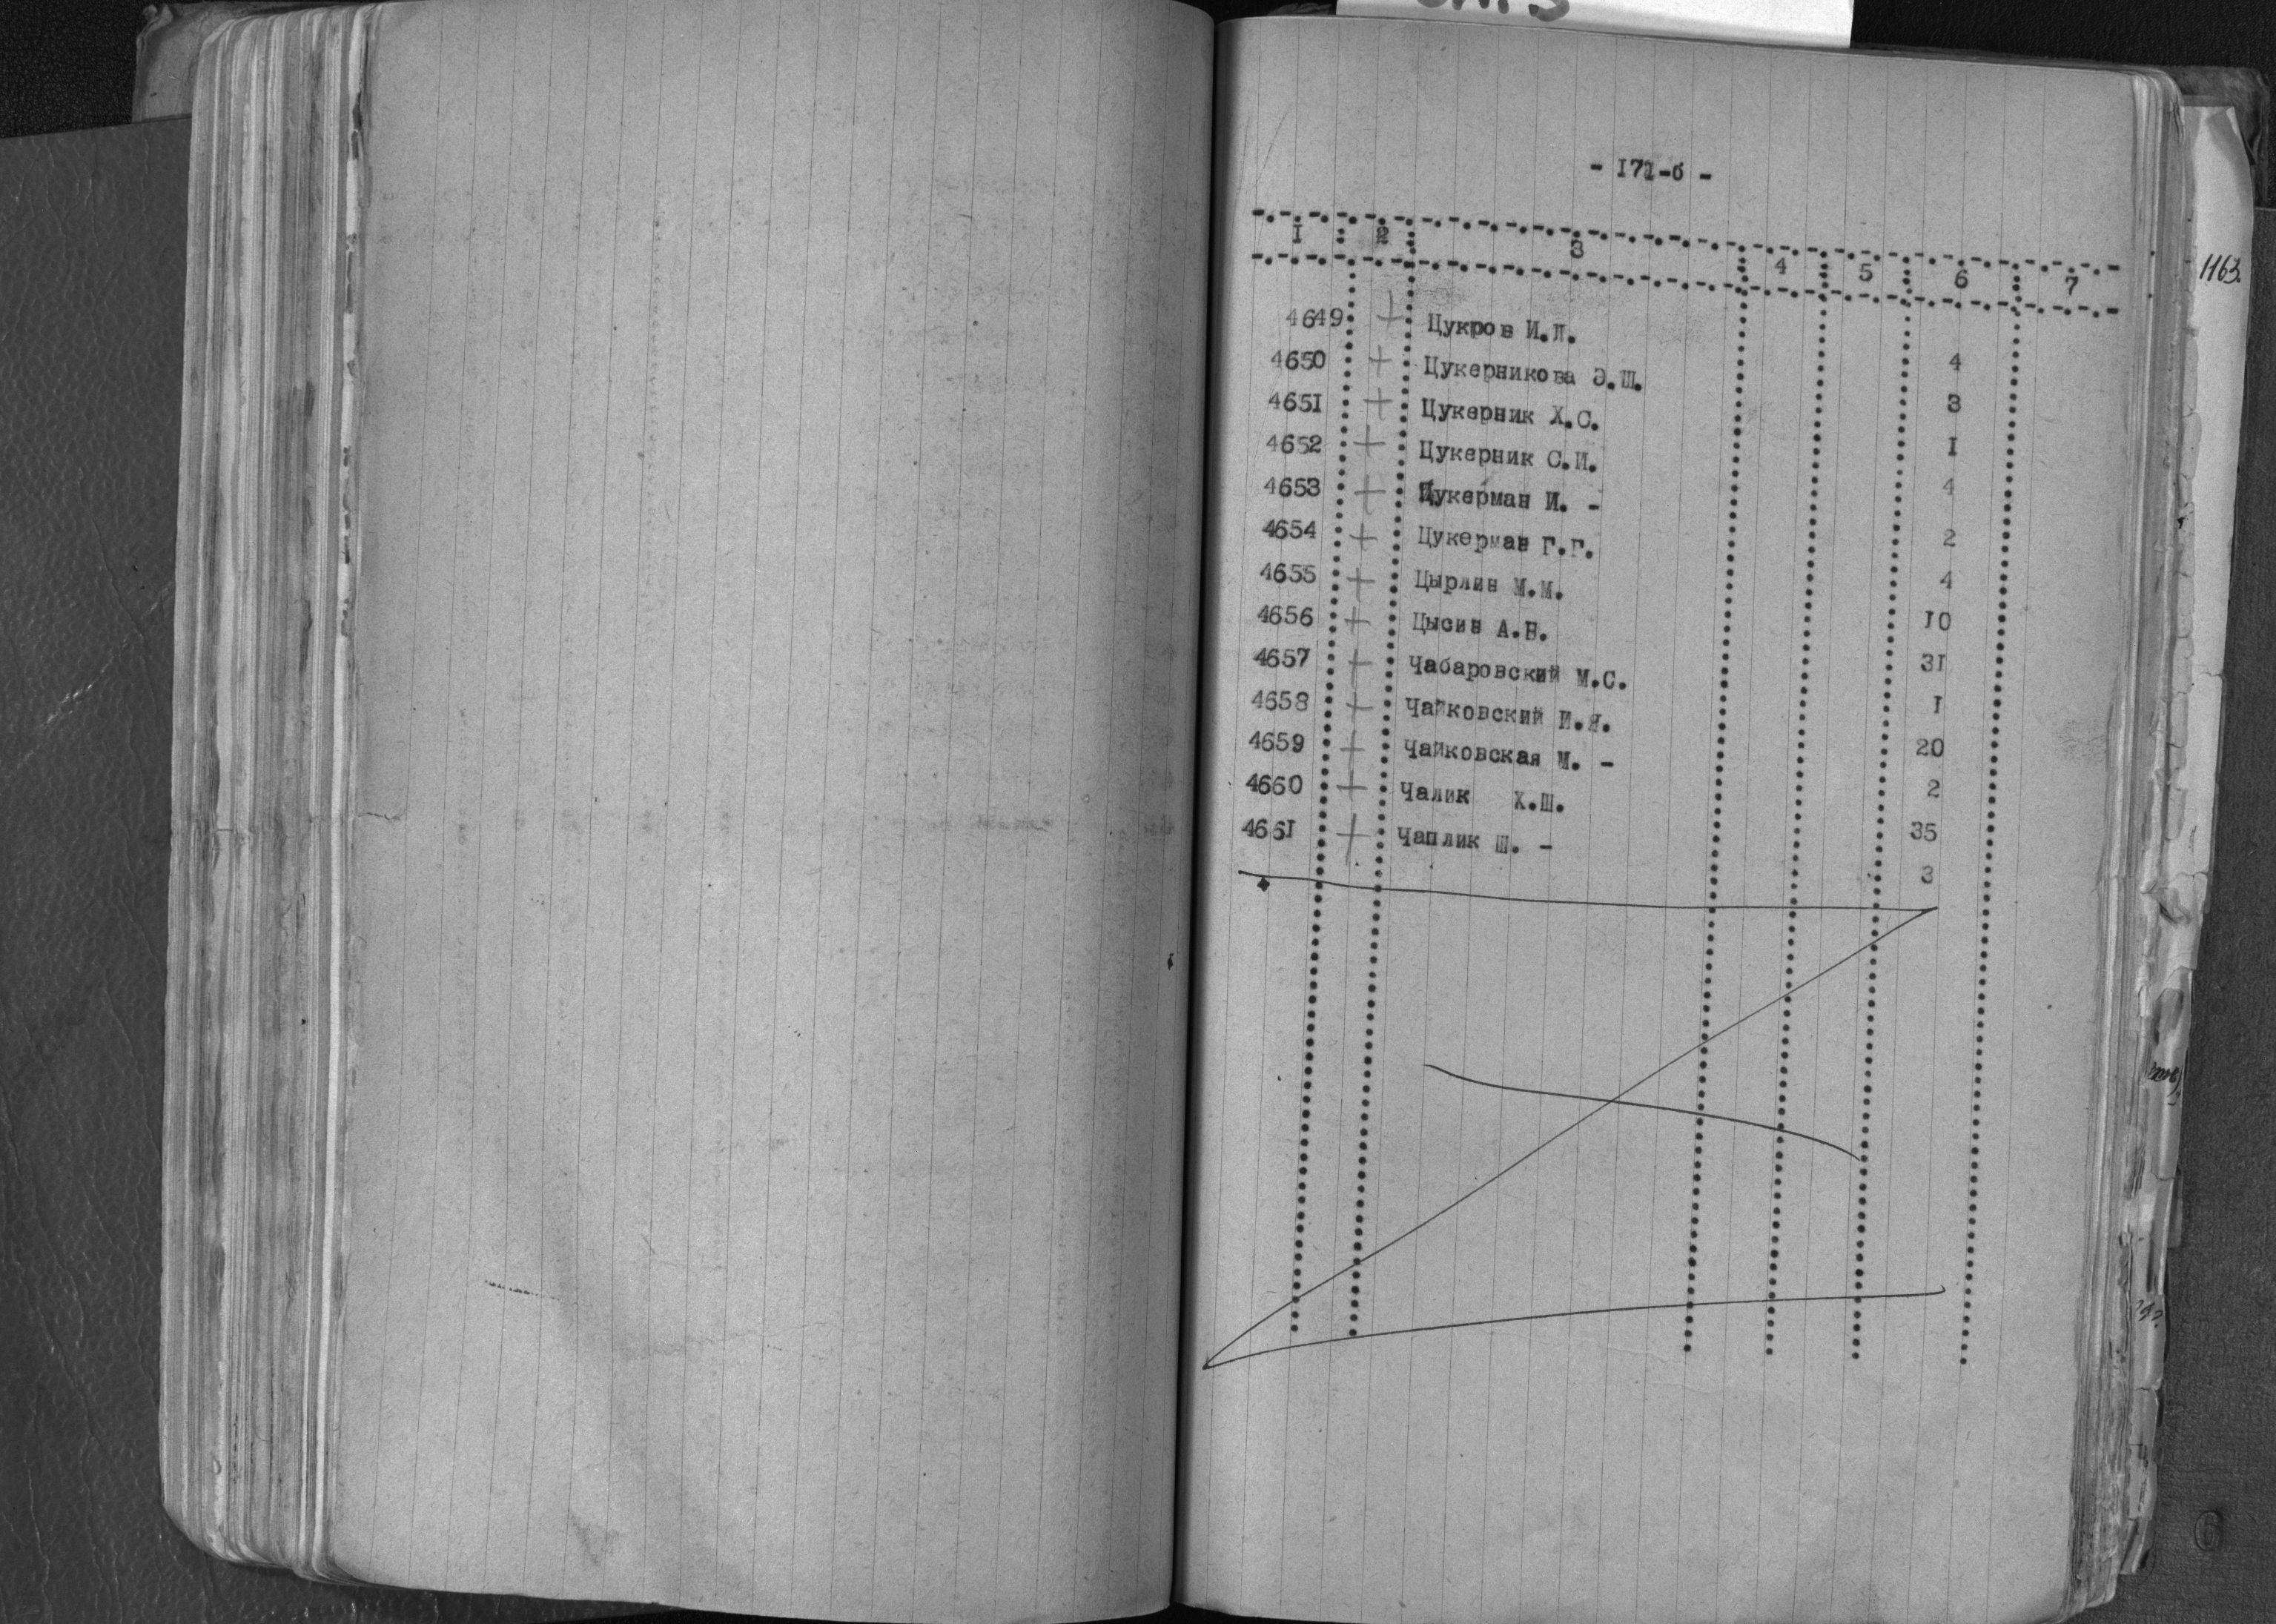 - I71-б -
I : 2 : 3 : 4 : 5 : 6 : 7
4649 + Цукров И.Л. 4
4650 + Цукерникова Э.Ш. 3
4651 + Цукерник Х.С. I
4652 + Цукерник С.И. 4
4653 + Цукерман И. - 2
4654 + Цукерман Г.Г. 4
4655 + Цырлин М.М. I0
4656 + Цысин А.В. 3I
4657 + Чабаровский М.С. I
4658 + Чайковский И.Я. 20
4659 + Чайковская М. - 2
4660 + Чалик Х.Ш. 35
466I + Чаплик Ш. - 3
1163.